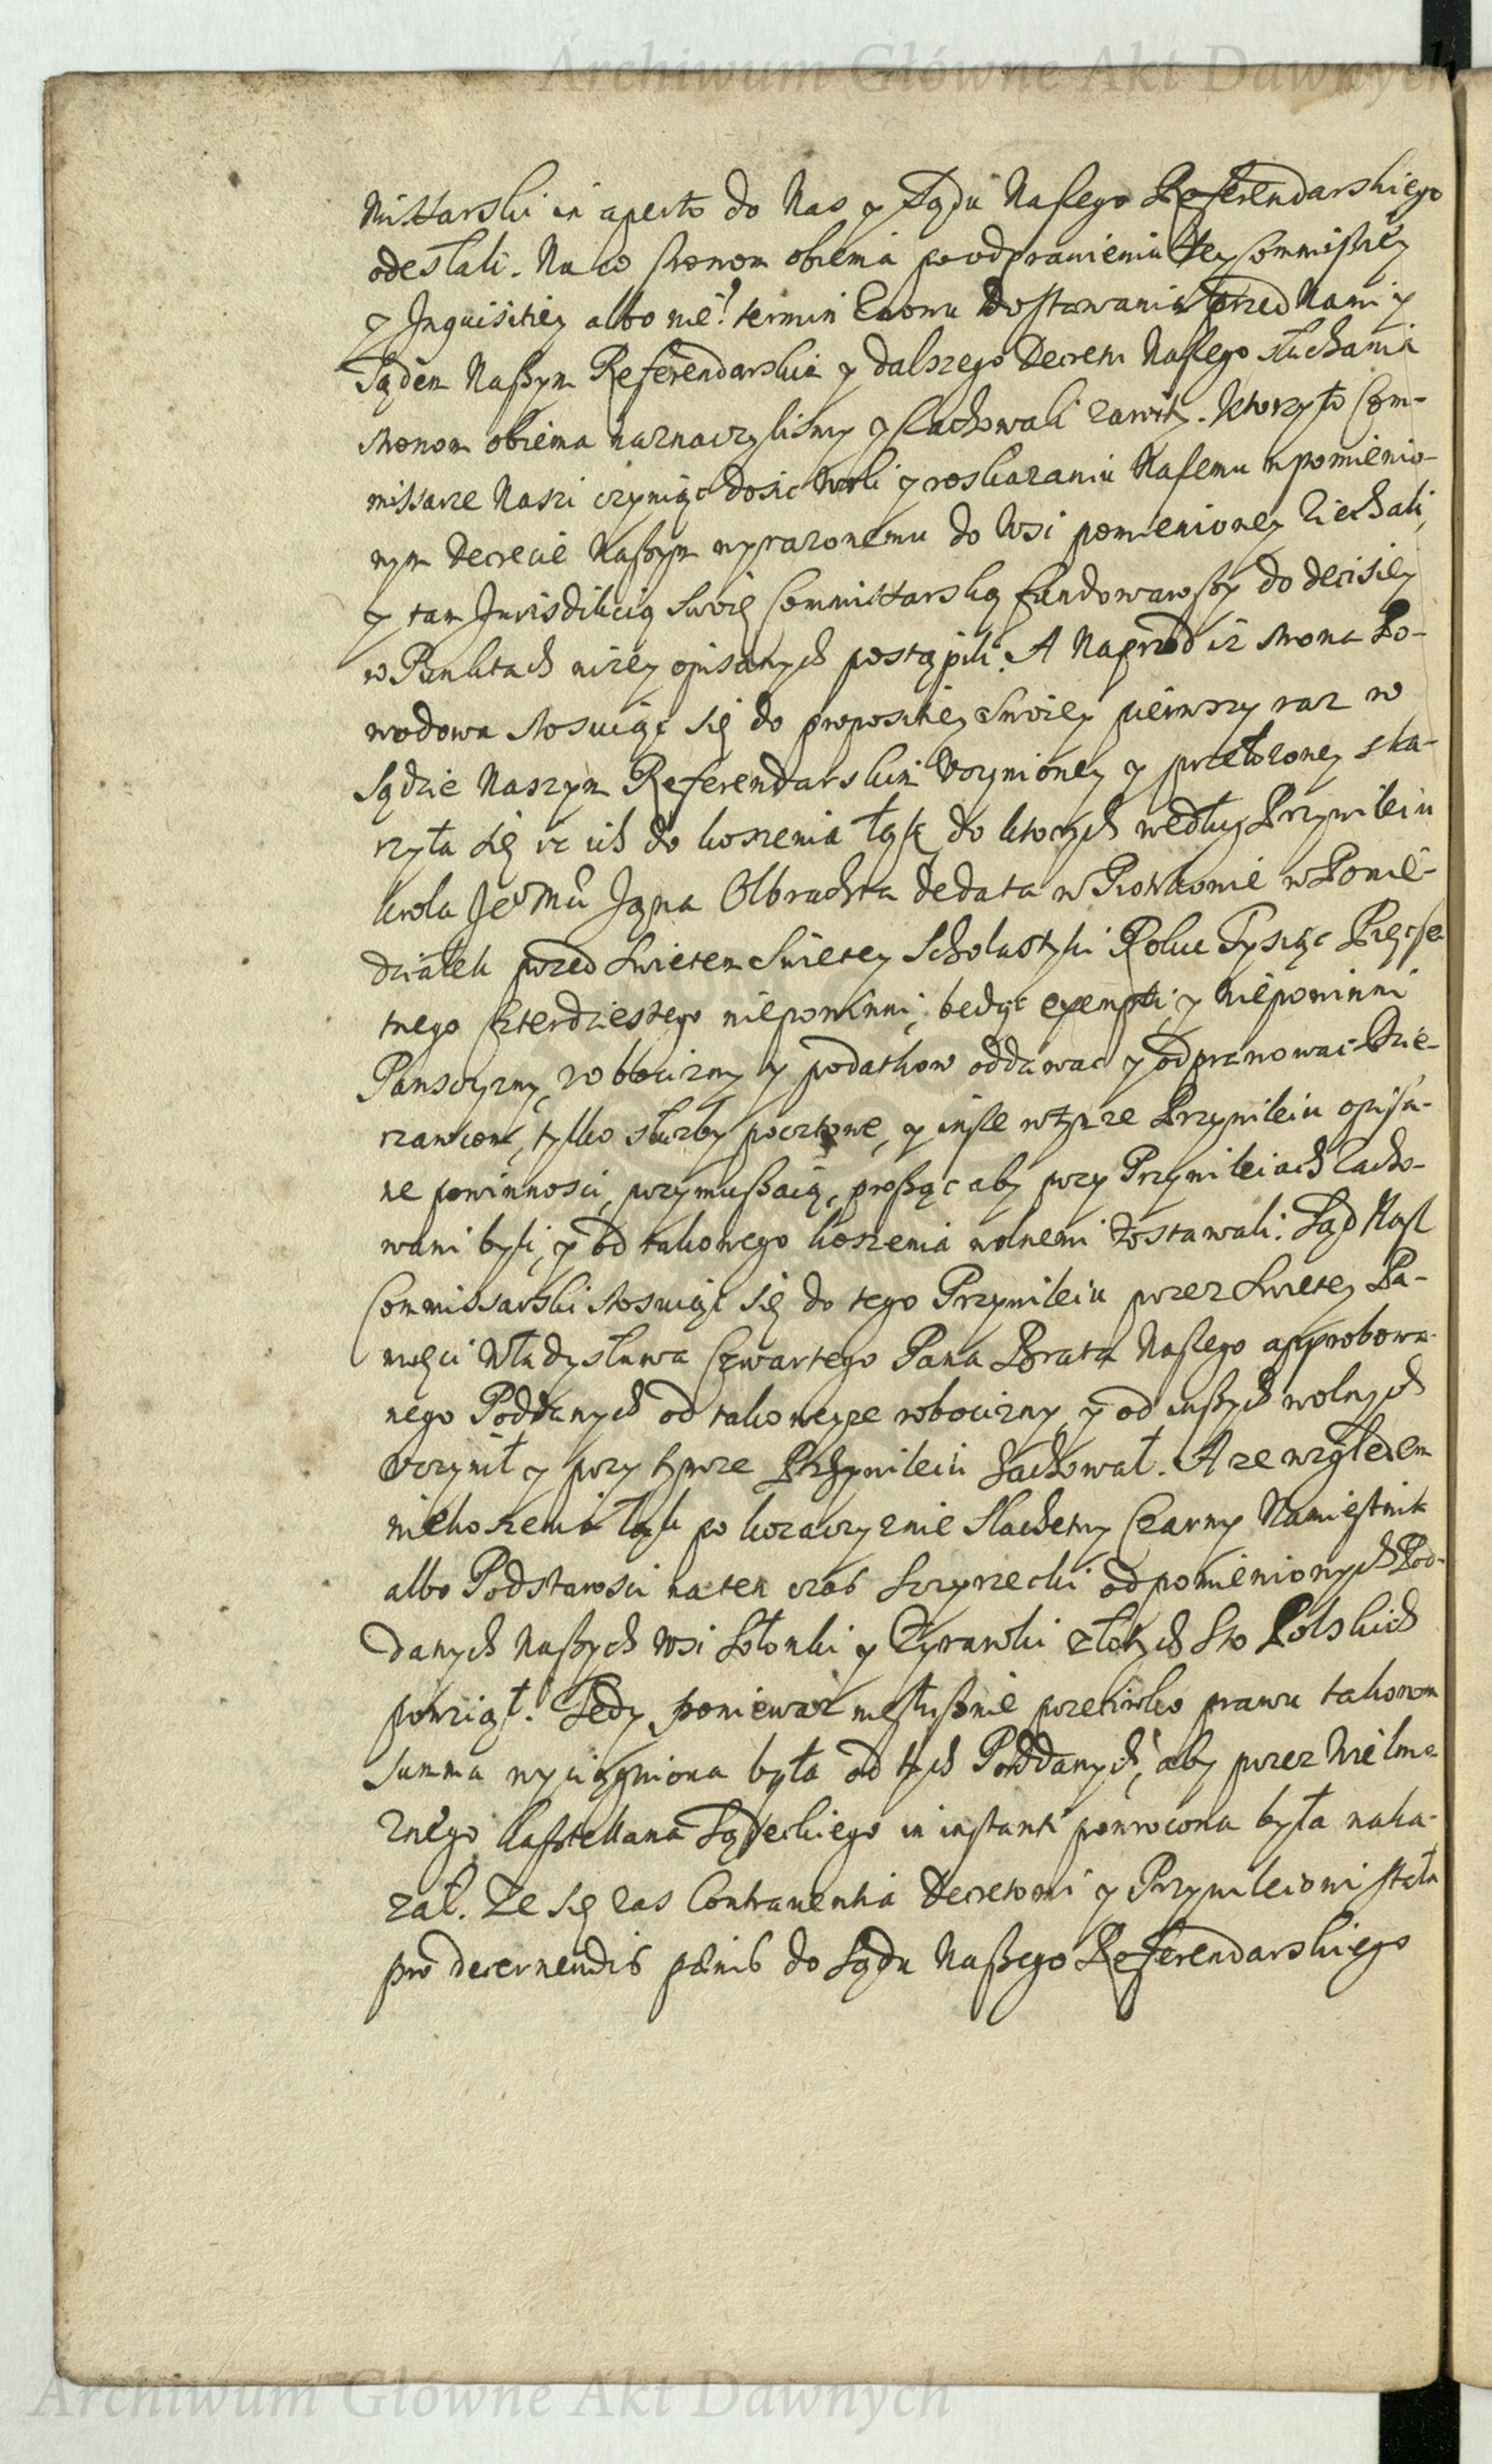 Archiwum Główne Akt Dawnych
missarski in aperto do Nas y Sądu Naszego Referendarskiego
odesłali. Na co stronom obiema po odprawieniu tey Commissiey
y Inquisitiey albo nie? termin znowu do stawania przed Nami y
Sądem Naszym Referendarskim y dalszego Decretu Naszego słuchania
stronom obiema naznaczylismy y zachowali zawity. Ktorzy to Com-
missarze Naszi czyniąc dosic woli y roskazaniu Naszemu w pomienio-
nym Decrecie Naszym wyrazonemu do Wsi pomienioney ziechali,
y tam Jurisdikcią Swoię Commissarską fundowawszy do decisiey
w Punktach nizey opisanych postąpili. A Naprzod iz strona Po-
wodowa stosuiąc się do propositiey Swoiey pierwszy raz w
Sądzie Naszym Referendarskim vczynioney y przełozoney ska-
rzyła się iz ich do koszenia łąk, do ktorych według Przywileiu
krola Jeo Mci Jana Olbrachta de data w Piotrkowie w Ponie-
działek przed Swietem Swietey Scholastyki Roku Tysiąc Pięćse-
tnego Czterdziestego niepowinni, bedąc exempti, y niepowinni
Panszczyzny, robocizny y podatkow oddawac y odprawowac Dzie-
rzawcom, tylko służby pocztowe, y insze w tymze Przywileiu opisa-
ne powinnosci, przymuszaią, prosząc aby przy Przywileiach zacho-
wani byli, y od takowego koszenia wolnemi zostawali. Sąd Nasz
Commissarski stosuiąc się do tego Przywileiu przez Swietey Pa-
mięci Władysława Czwartego Pana Brata Naszego approbowa-
nego Poddanych od takoweyze robocizny y od inszych wolnych
vczynił y przy tymze Przywileiu zachował. A ze względem
niekoszenia łąk po kozaczyznie Slachetny Czarny Namiestnik
albo Podstarosci na ten czas Szczyrzecki od pomienionych Pod-
danych Naszych Wsi Sołonki y Zyrawki złotych Sto Polskich
powziął. Tedy poniewaz niesłusznie przeciwko prawu takowa
Summa wyciągniona była od tych Poddanych, aby przez Wielmo-
znego Kasztellana Sądeckiego in instanti powrocona była naka-
zał. Ze się zas Contrauentia Decretowi y Przywileiowi stała
pro decernendis pænis do Sądu Naszego Referendarskiego
Archiwum Główne Akt Dawnych